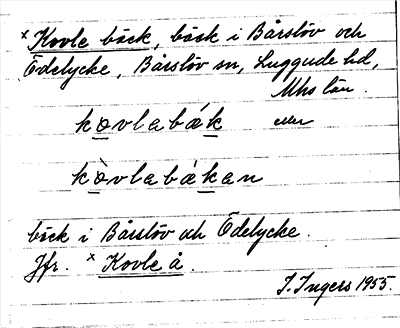 × Kovle bäck, bäck i Bårslöv och
Ödelycke, Bårslöv sn, Luggude hd,
Mhs län.
kovlabäk eller
kòvlabäkan
bäck i Bårslöv och Ödelycke.
Jfr. × Kovle å.
I. Ingers 1955.